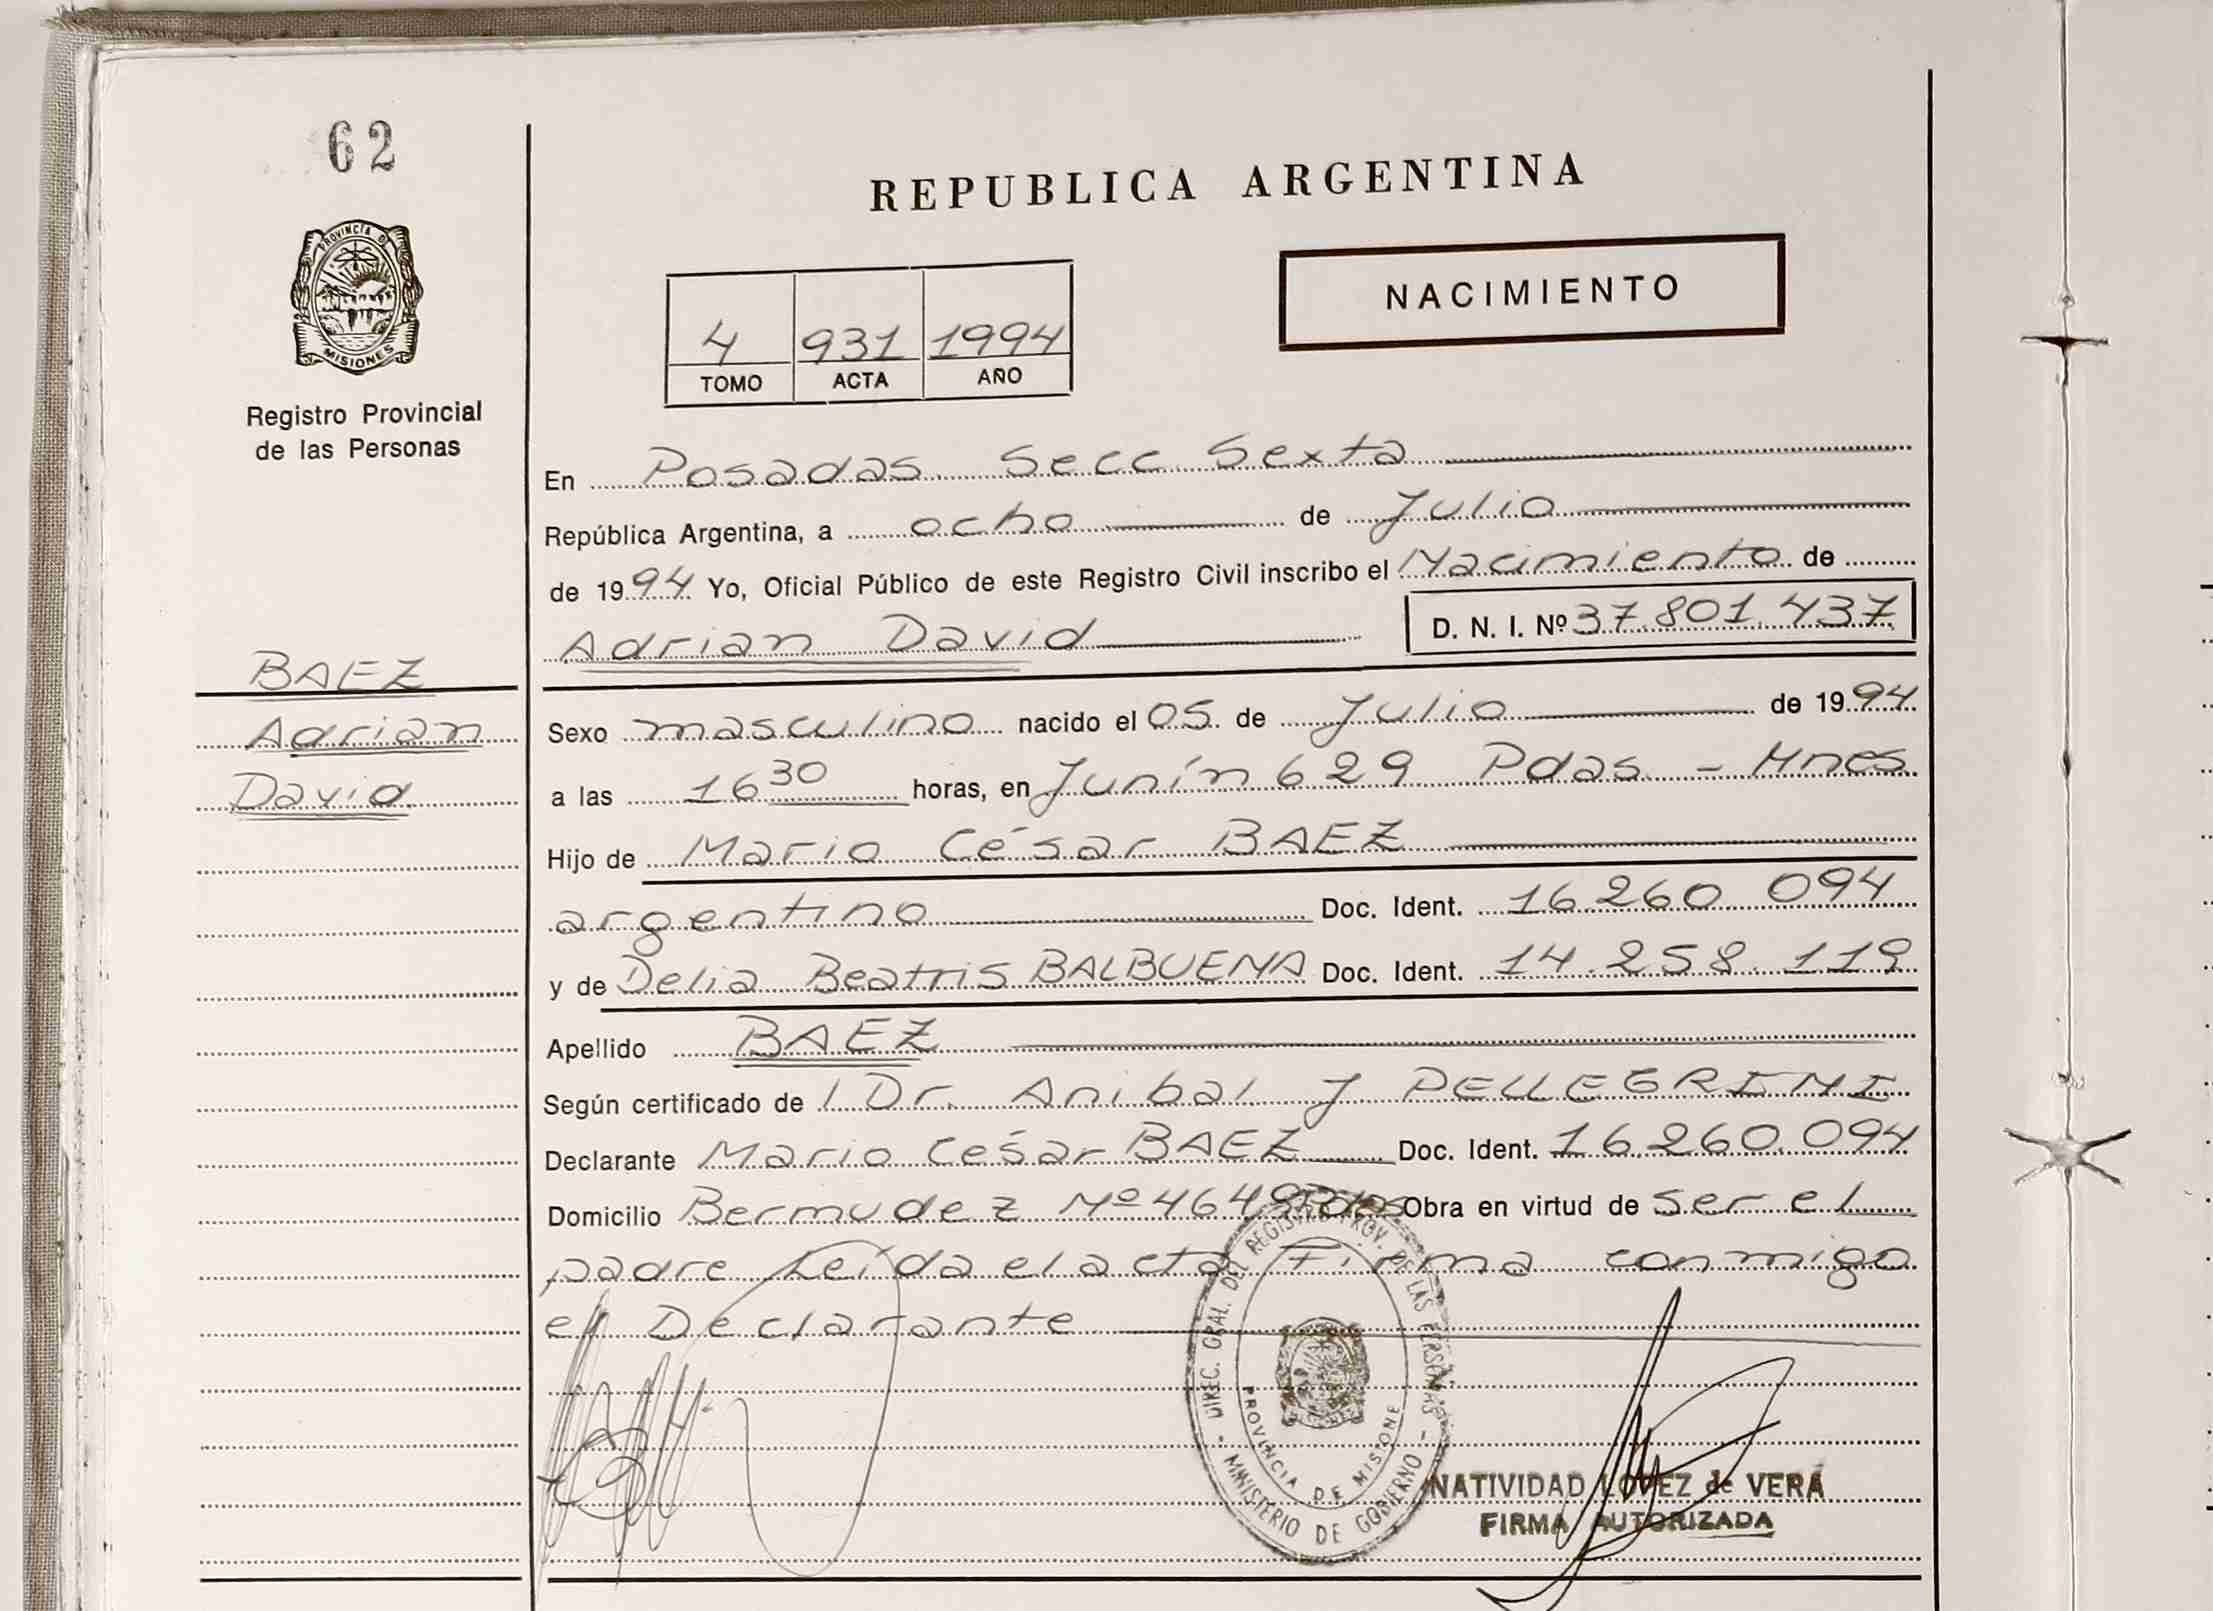 62
PROVINCIA DE
MISIONES
Registro Provincial
de las Personas
BAEZ
Adrian
David
REPUBLICA ARGENTINA
4 931 1994
TOMO ACTA AÑO
NACIMIENTO
En Posadas Secc Sexta
República Argentina, a ocho de Julio
de 1994 Yo, Oficial Público de este Registro Civil inscribo el Nacimiento de
Adrian David D. N. I. Nº 37.801.437
Sexo masculino nacido el 05 de Julio de 1994
a las 16 30 horas, en Junín 629 Pdas - Mnes
Hijo de Mario César BAEZ
argentino Doc. Ident. 16260 094
y de Delia Beatris BALBUENA Doc. Ident. 14.258.119
Apellido BAEZ
Según certificado de l Dr. Anibal J PELLEGRINI
Declarante Mario César BAEZ Doc. Ident. 16.260.094
Domicilio Bermudez Nº 4649 Pdas Obra en virtud de ser el
padre Leída el acta Firma conmigo
el Declarante
DIREC. GRAL. DEL REGISTRO PROV. DE LAS PERSONAS
- MINISTERIO DE GOBIERNO -
PROVINCIA DE MISIONE
NATIVIDAD LOPEZ de VERA
FIRMA AUTORIZADA